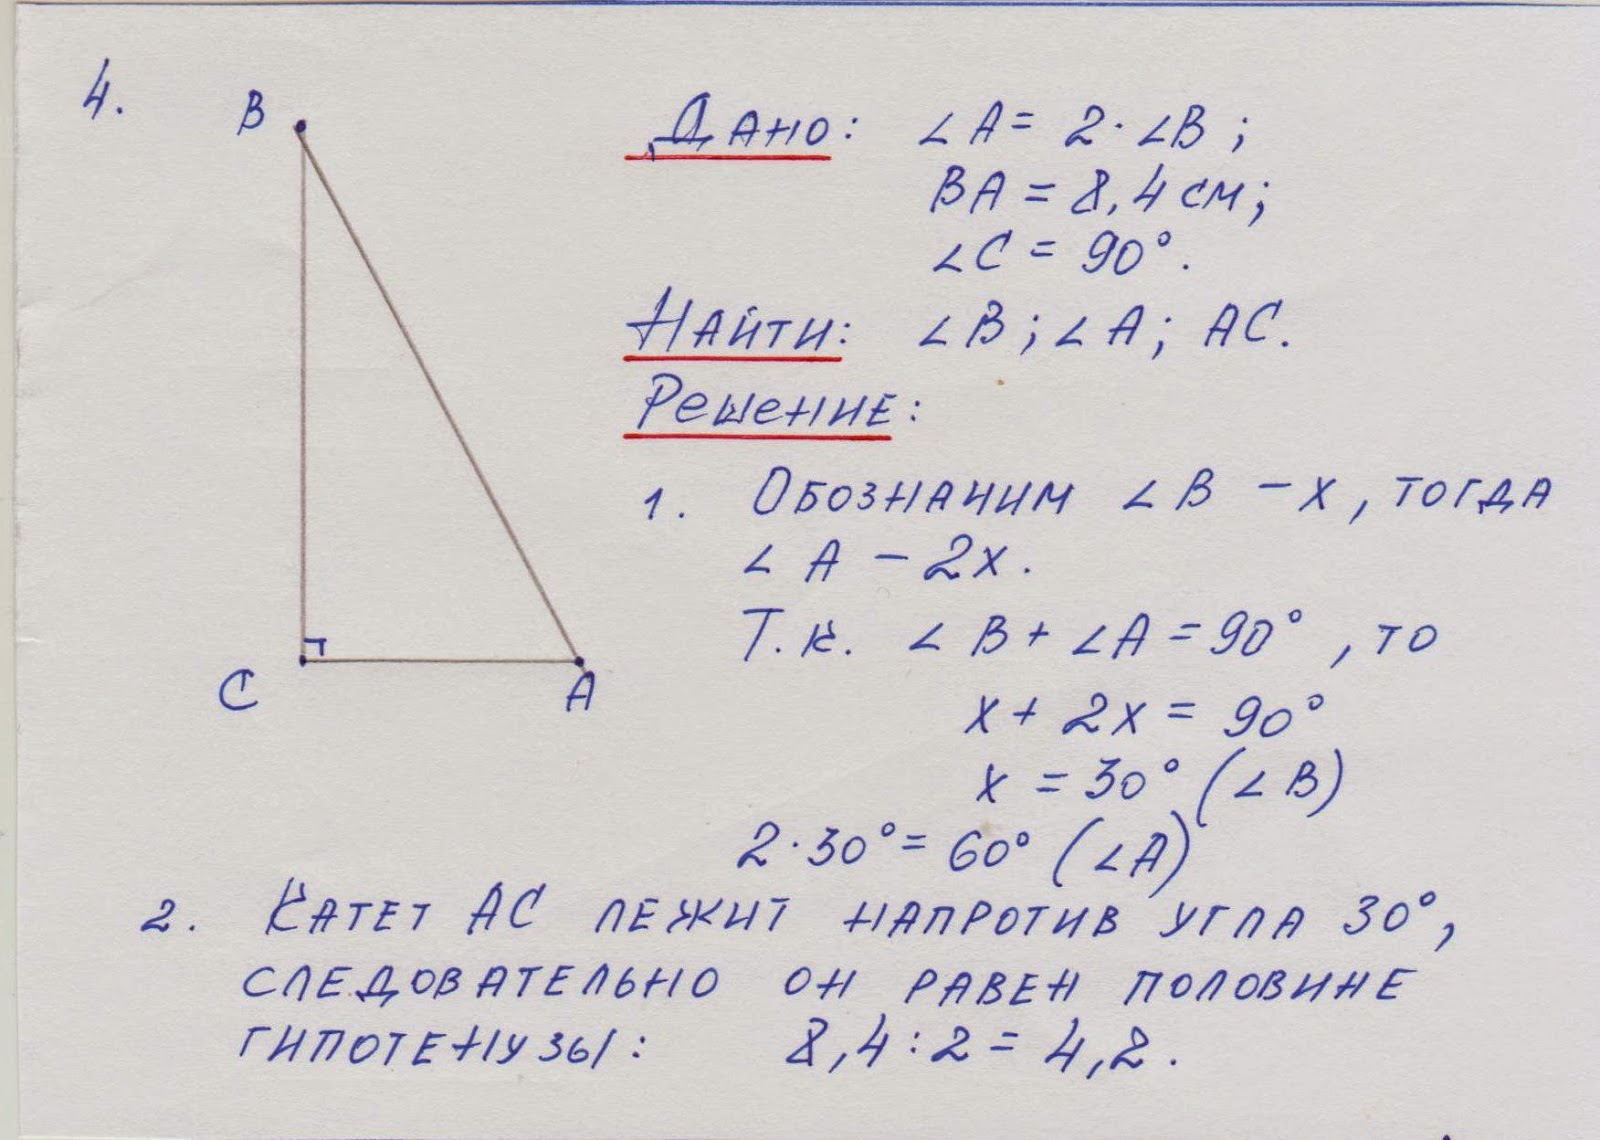 4.
B
C
A
Дано: ∠A = 2·∠B;
BA = 8,4 см;
∠C = 90°.
Найти: ∠B; ∠A; AC.
Решение:
1. Обозначим ∠B – x, тогда
∠A – 2x.
Т.к. ∠B + ∠A = 90°, то
x + 2x = 90°
x = 30° (∠B)
2·30° = 60° (∠A)
2. Катет AC лежит напротив угла 30°,
следовательно он равен половине
гипотенузы: 8,4 : 2 = 4,2.